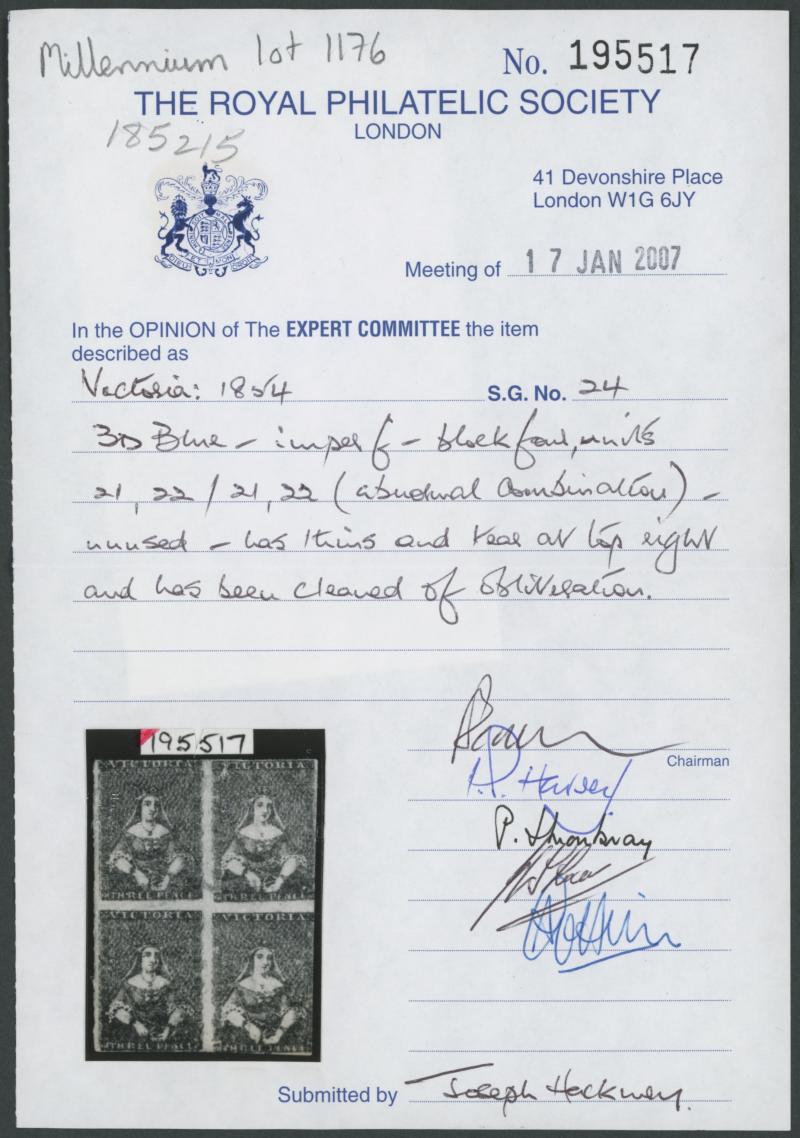 Millennium lot 1176
No. 195517
THE ROYAL PHILATELIC SOCIETY
LONDON
185215
41 Devonshire Place
London W1G 6JY
Meeting of 17 JAN 2007
In the OPINION of The EXPERT COMMITTEE the item
described as
Victoria: 1854 S.G. No. 24
3D Blue - imperf - block four, units
21, 22 / 21, 22 (abnormal combination) -
unused - has thins and tear at top right
and has been cleaned of obliteration.
195517
VICTORIA VICTORIA
THREE PENCE THREE PENCE
VICTORIA VICTORIA
THREE PENCE THREE PENCE
Chairman
P. Harvey
P.
Submitted by Joseph Hackmey.